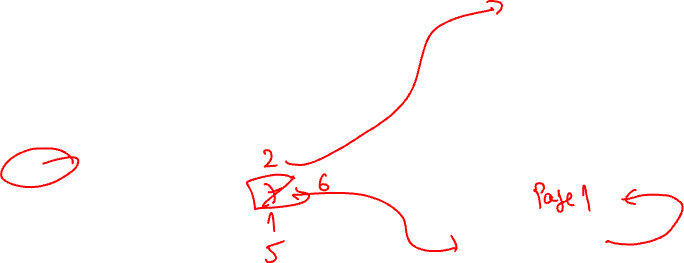 2
6
1
5
Page 1